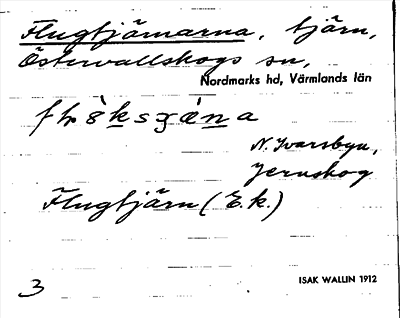 Flugtjärnarna, tjärn,
Östervallskogs sn,
Nordmarks hd, Värmlands län
N. Ivarsbyn,
Jernskog
Flugtjärn (E.k.)
3
ISAK WALLIN 1912